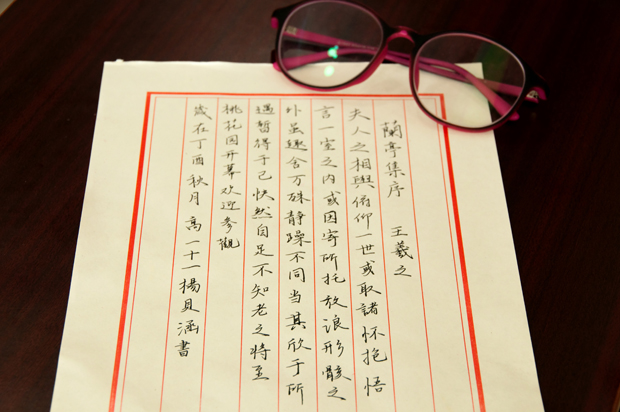 蘭亭集序 王羲之
夫人之相與俯仰一世或取諸怀抱悟
言一室之内或因寄所托放浪形骸之
外虽趣含万殊静躁不同当其欣于所
遇暂得于己快然自足不知老之将至
桃花园开幕欢迎参觀
歲在丁酉秋月 高一十一楊貝涵書